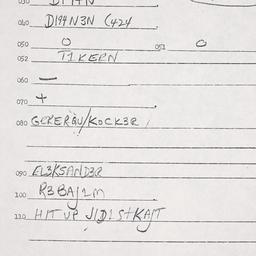 040 DI99N3N (424
050 O 051 O
052 T1KERN
060 —
070 +
080 GEKERQU/KOCK3R
090 EL3KSAND3R
100 R3BAJ1M
110 HIT UP JIDISTKAJT